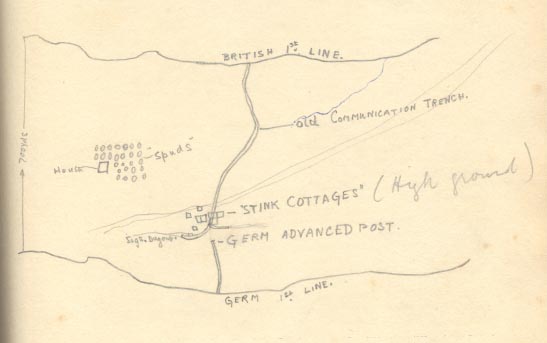 BRITISH 1st LINE.
old COMMUNICATION TRENCH.
"Spuds"
House
"STINK COTTAGES" (High ground)
GERM ADVANCED POST.
GERM 1st LINE.